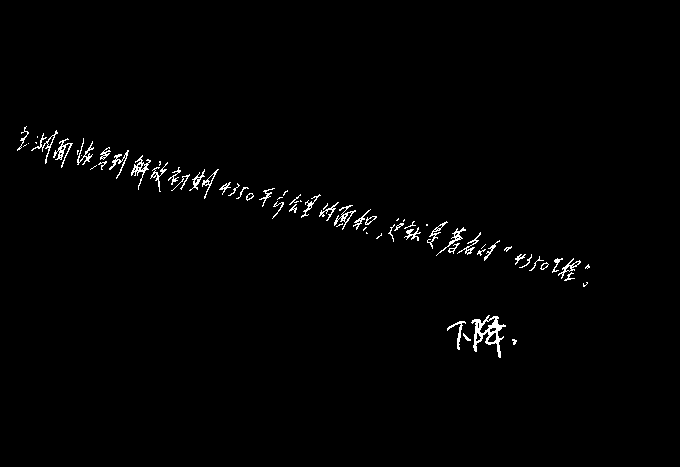 主湖面恢复到解放初期4350平方公里的面积，这就是著名的“4350工程”。
下降．